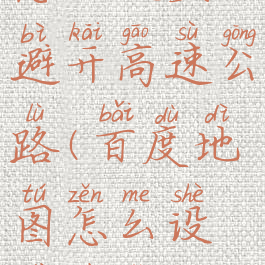 bì kāi gāo sù gōng
避开高速公
lù bǎi dù dì
路(百度地
tú zěn me shè
图怎么设